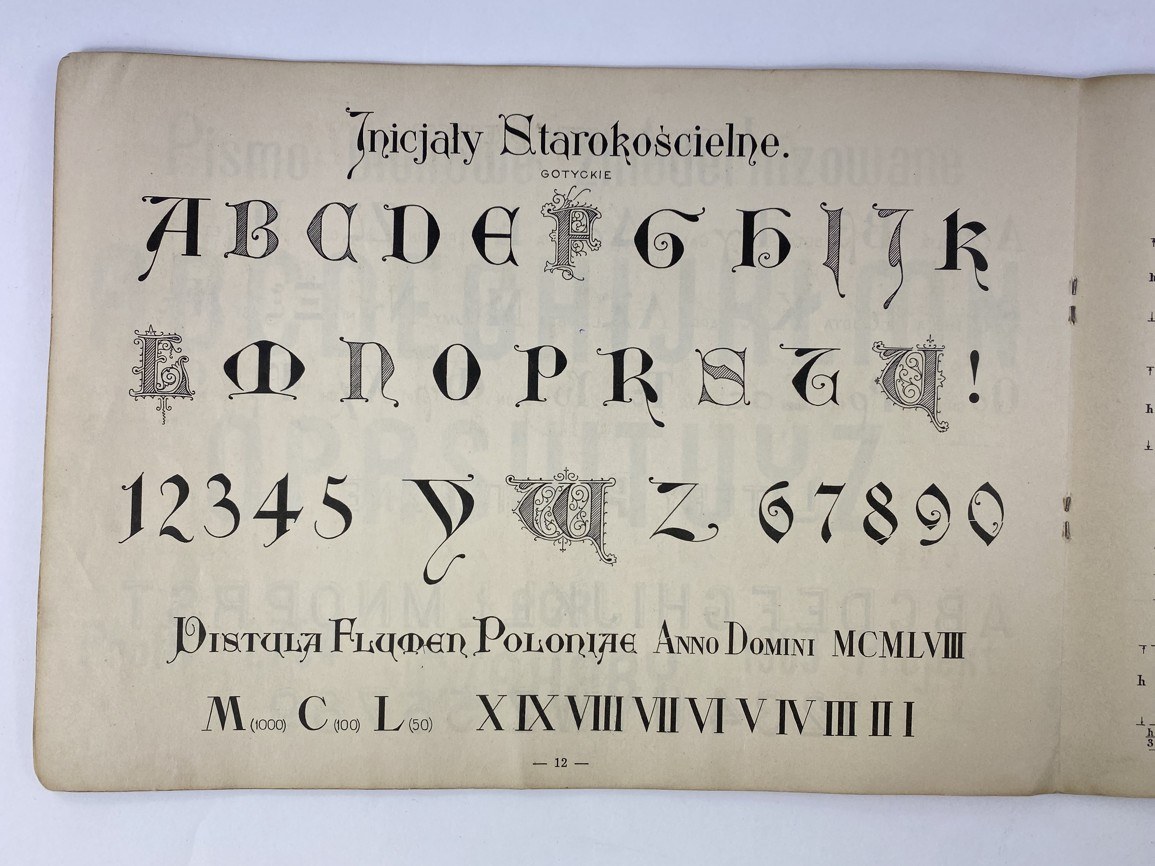 Inicjały Starokościelne.
GOTYCKIE
A B C D E F G H I J K
L M N O P R S T U !
1 2 3 4 5 Y W Z 6 7 8 9 0
Vistula Flumen Poloniae Anno Domini MCMLVIII
M (1000) C (100) L (50) X IX VIII VII VI V IV III II I
— 12 —